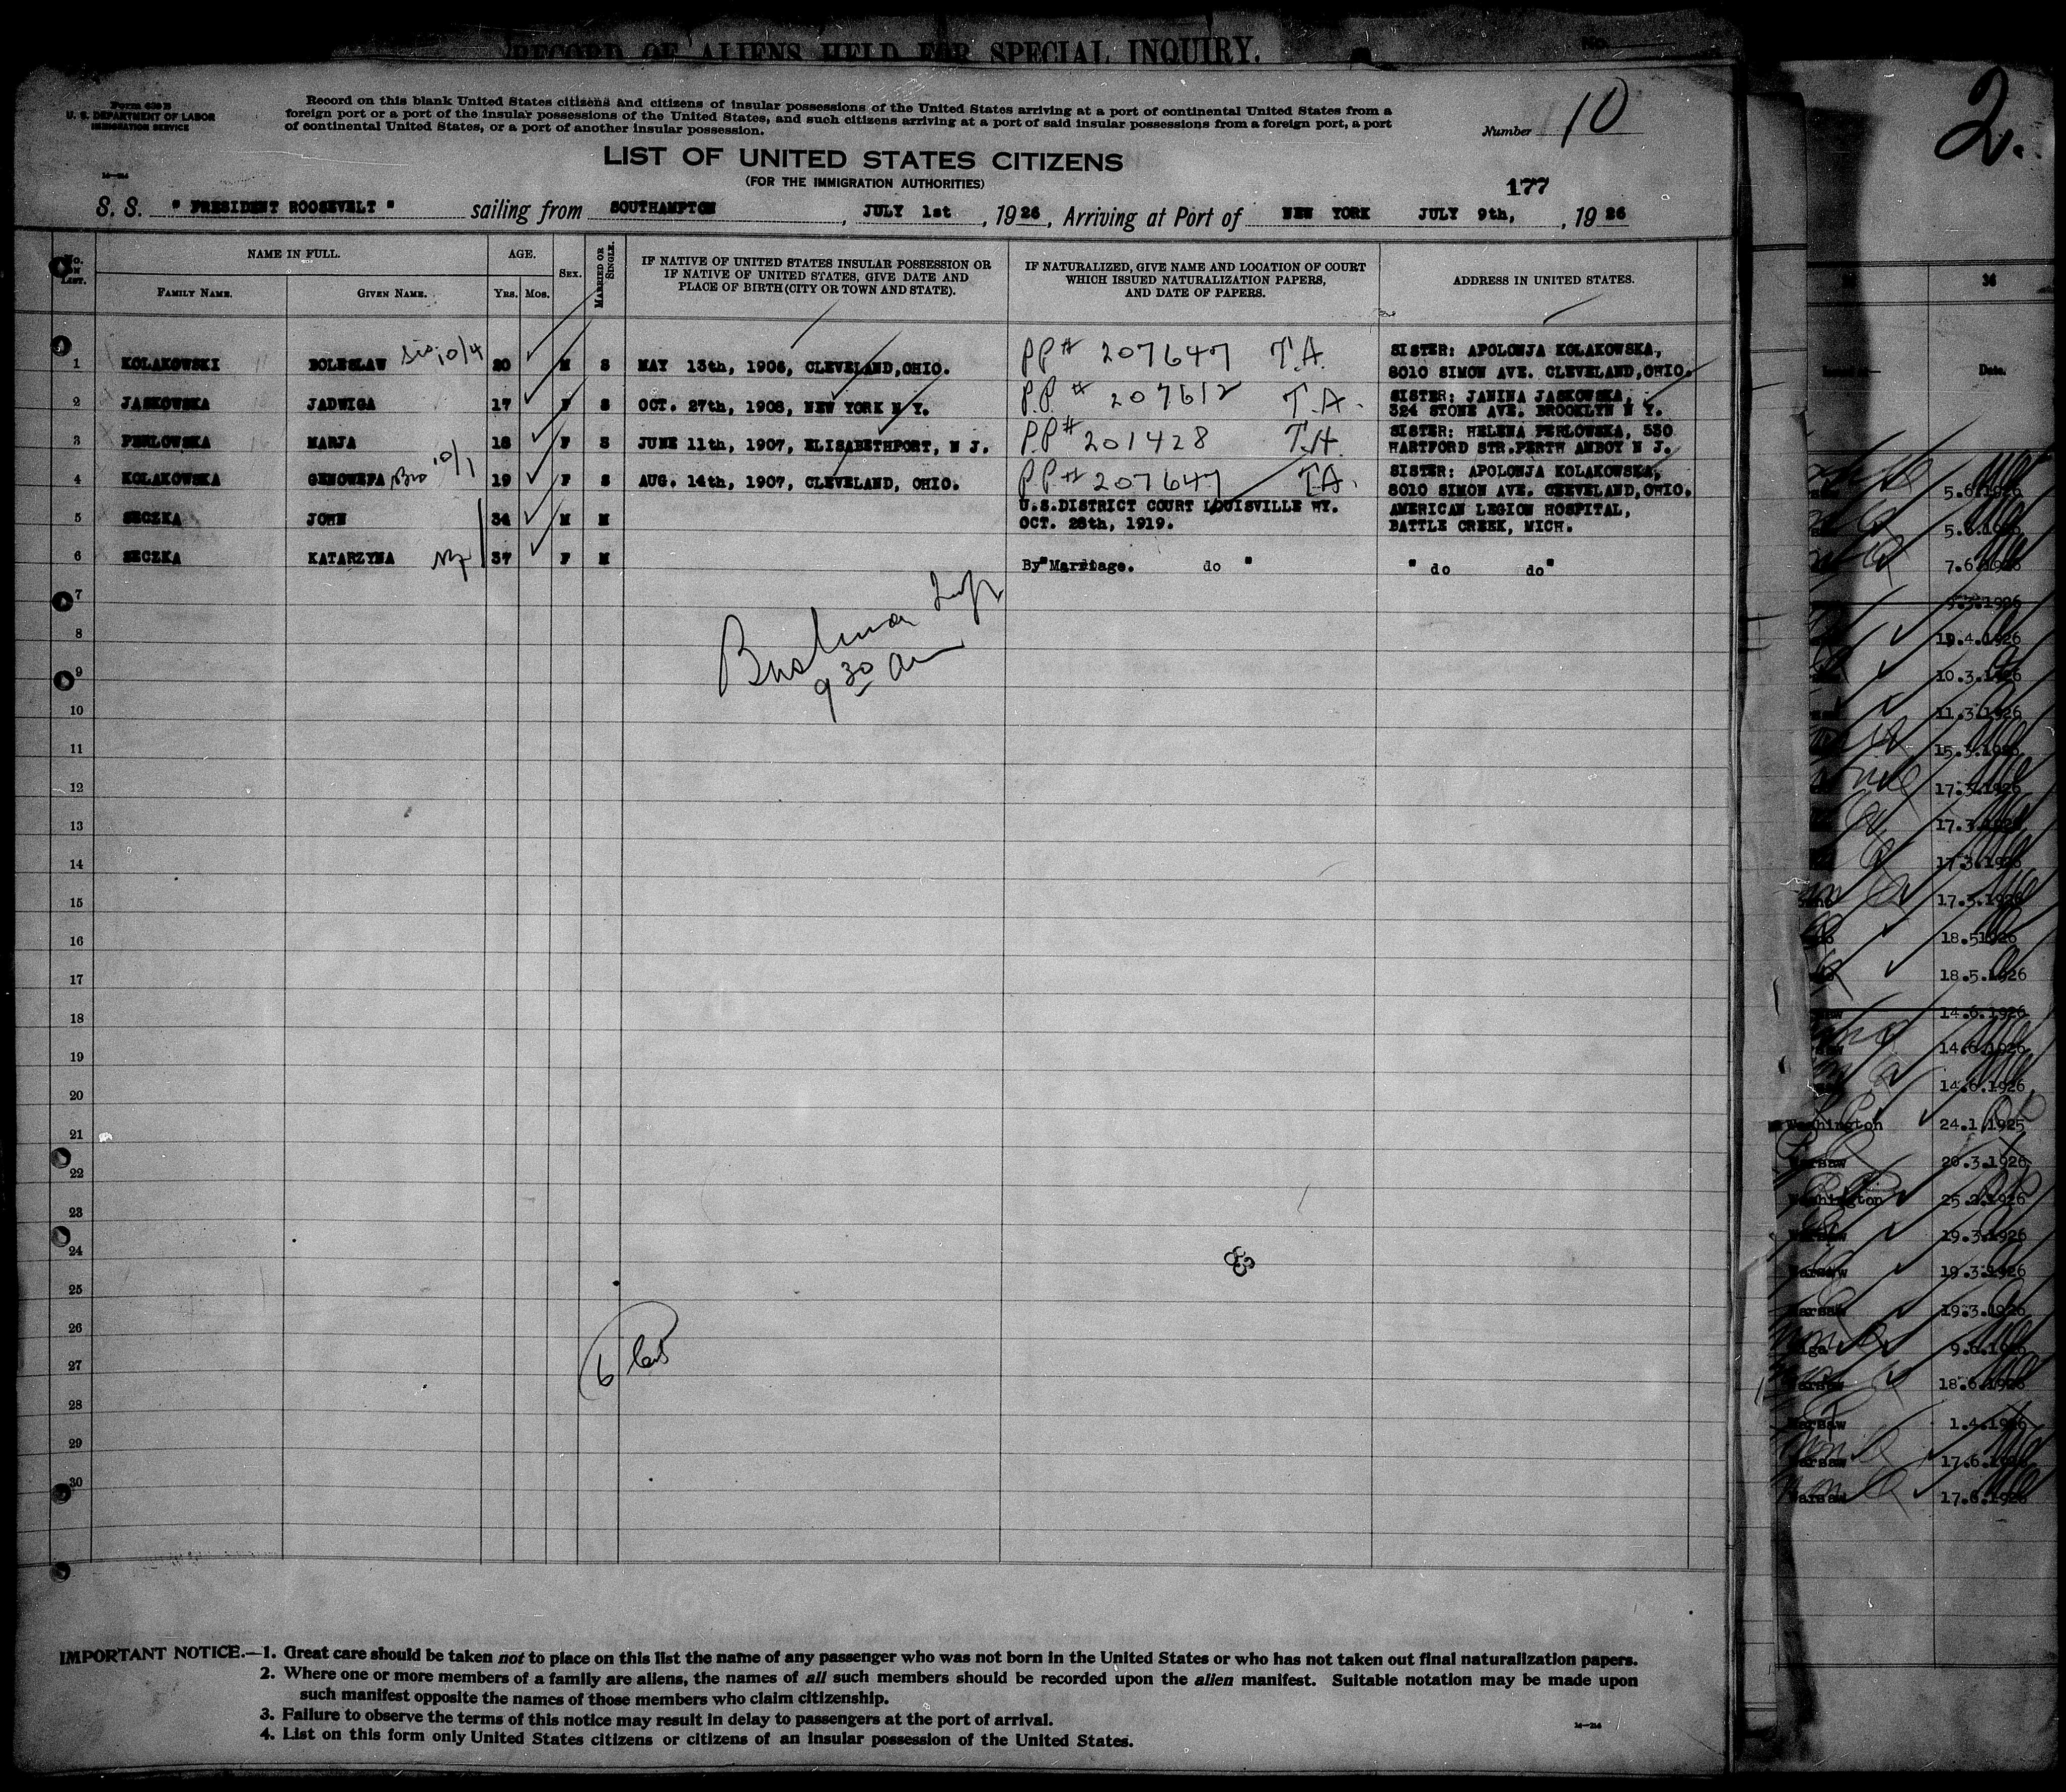 RECORD OF ALIENS HELD FOR SPECIAL INQUIRY.
No.
Form 630 B
U. S. DEPARTMENT OF LABOR
IMMIGRATION SERVICE
Record on this blank United States citizens and citizens of insular possessions of the United States arriving at a port of continental United States from a
foreign port or a port of the insular possessions of the United States, and such citizens arriving at a port of said insular possessions from a foreign port, a port
of continental United States, or a port of another insular possession.
Number 10
2.
LIST OF UNITED STATES CITIZENS
(FOR THE IMMIGRATION AUTHORITIES)
177
S. S. " PRESIDENT ROOSEVELT " sailing from SOUTHAMPTON, JULY 1st, 1926, Arriving at Port of NEW YORK JULY 9th, , 1926
No. ON LIST. NAME IN FULL. AGE. SEX. MARRIED OR SINGLE. IF NATIVE OF UNITED STATES INSULAR POSSESSION OR
IF NATIVE OF UNITED STATES, GIVE DATE AND
PLACE OF BIRTH (CITY OR TOWN AND STATE). IF NATURALIZED, GIVE NAME AND LOCATION OF COURT
WHICH ISSUED NATURALIZATION PAPERS,
AND DATE OF PAPERS. ADDRESS IN UNITED STATES.
FAMILY NAME. GIVEN NAME. Yrs. Mos.
36
Date.
1 KOLAKOWSKI BOLESLAW sis 10/4 20 M S MAY 13th, 1906, CLEVELAND,OHIO. PP# 207647 T.A. SISTER: APOLONJA KOLAKOWSKA,
8010 SIMON AVE. CLEVELAND,OHIO.
2 JASKOWSKA JADWIGA 17 F S OCT. 27th, 1908, NEW YORK N Y. P.P. # 207612 T.A. SISTER: JANINA JASKOWSKA,
324 STONE AVE. BROOKLYN N Y.
3 PERLOWSKA MARJA 18 F S JUNE 11th, 1907, ELISABETHPORT, N J. PP# 201428 T.A. SISTER: HELENA PERLOWSKA, 530
HARTFORD STR.PERTH AMBOY N J.
4 KOLAKOWSKA GENOWEFA Bro 10/1 19 F S AUG. 14th, 1907, CLEVELAND, OHIO. PP# 207647 T.A. SISTER: APOLONJA KOLAKOWSKA,
8010 SIMON AVE. CLEVELAND,OHIO.
5 SECZKA JOHN 34 M M U.S.DISTRICT COURT LOUISVILLE WY.
OCT. 28th, 1919. AMERICAN LEGION HOSPITAL,
BATTLE CREEK, MICH.
6 SECZKA KATARZYNA 37 F M By"Marriage. do " " do do"
7
8
9
9 30 am
10
11
12
13
14
15
16
17
18
19
20
21
22
23
24
25
26
27
28
29
30
6
5.6.1926
5.6.1926
7.6.1926
9.3.1926
19.4.1926
10.3.1926
11.3.1926
15.3.1926
17.3.1926
17.3.1926
17.3.1926
17.3.1926
18.5.1926
18.5.1926
14.6.1926
14.6.1926
14.6.1926
Washington 24.1.1925
Warsaw 20.3.1926
Washington 25.2.1926
Warsaw 19.3.1926
Warsaw 19.3.1926
Warsaw 19.3.1926
Riga 9.6.1926
Warsaw 18.6.1926
Warsaw 1.4.1926
Warsaw 17.6.1926
Warsaw 17.6.1926
IMPORTANT NOTICE.—1. Great care should be taken not to place on this list the name of any passenger who was not born in the United States or who has not taken out final naturalization papers.
2. Where one or more members of a family are aliens, the names of all such members should be recorded upon the alien manifest. Suitable notation may be made upon
such manifest opposite the names of those members who claim citizenship.
3. Failure to observe the terms of this notice may result in delay to passengers at the port of arrival.
4. List on this form only United States citizens or citizens of an insular possession of the United States.